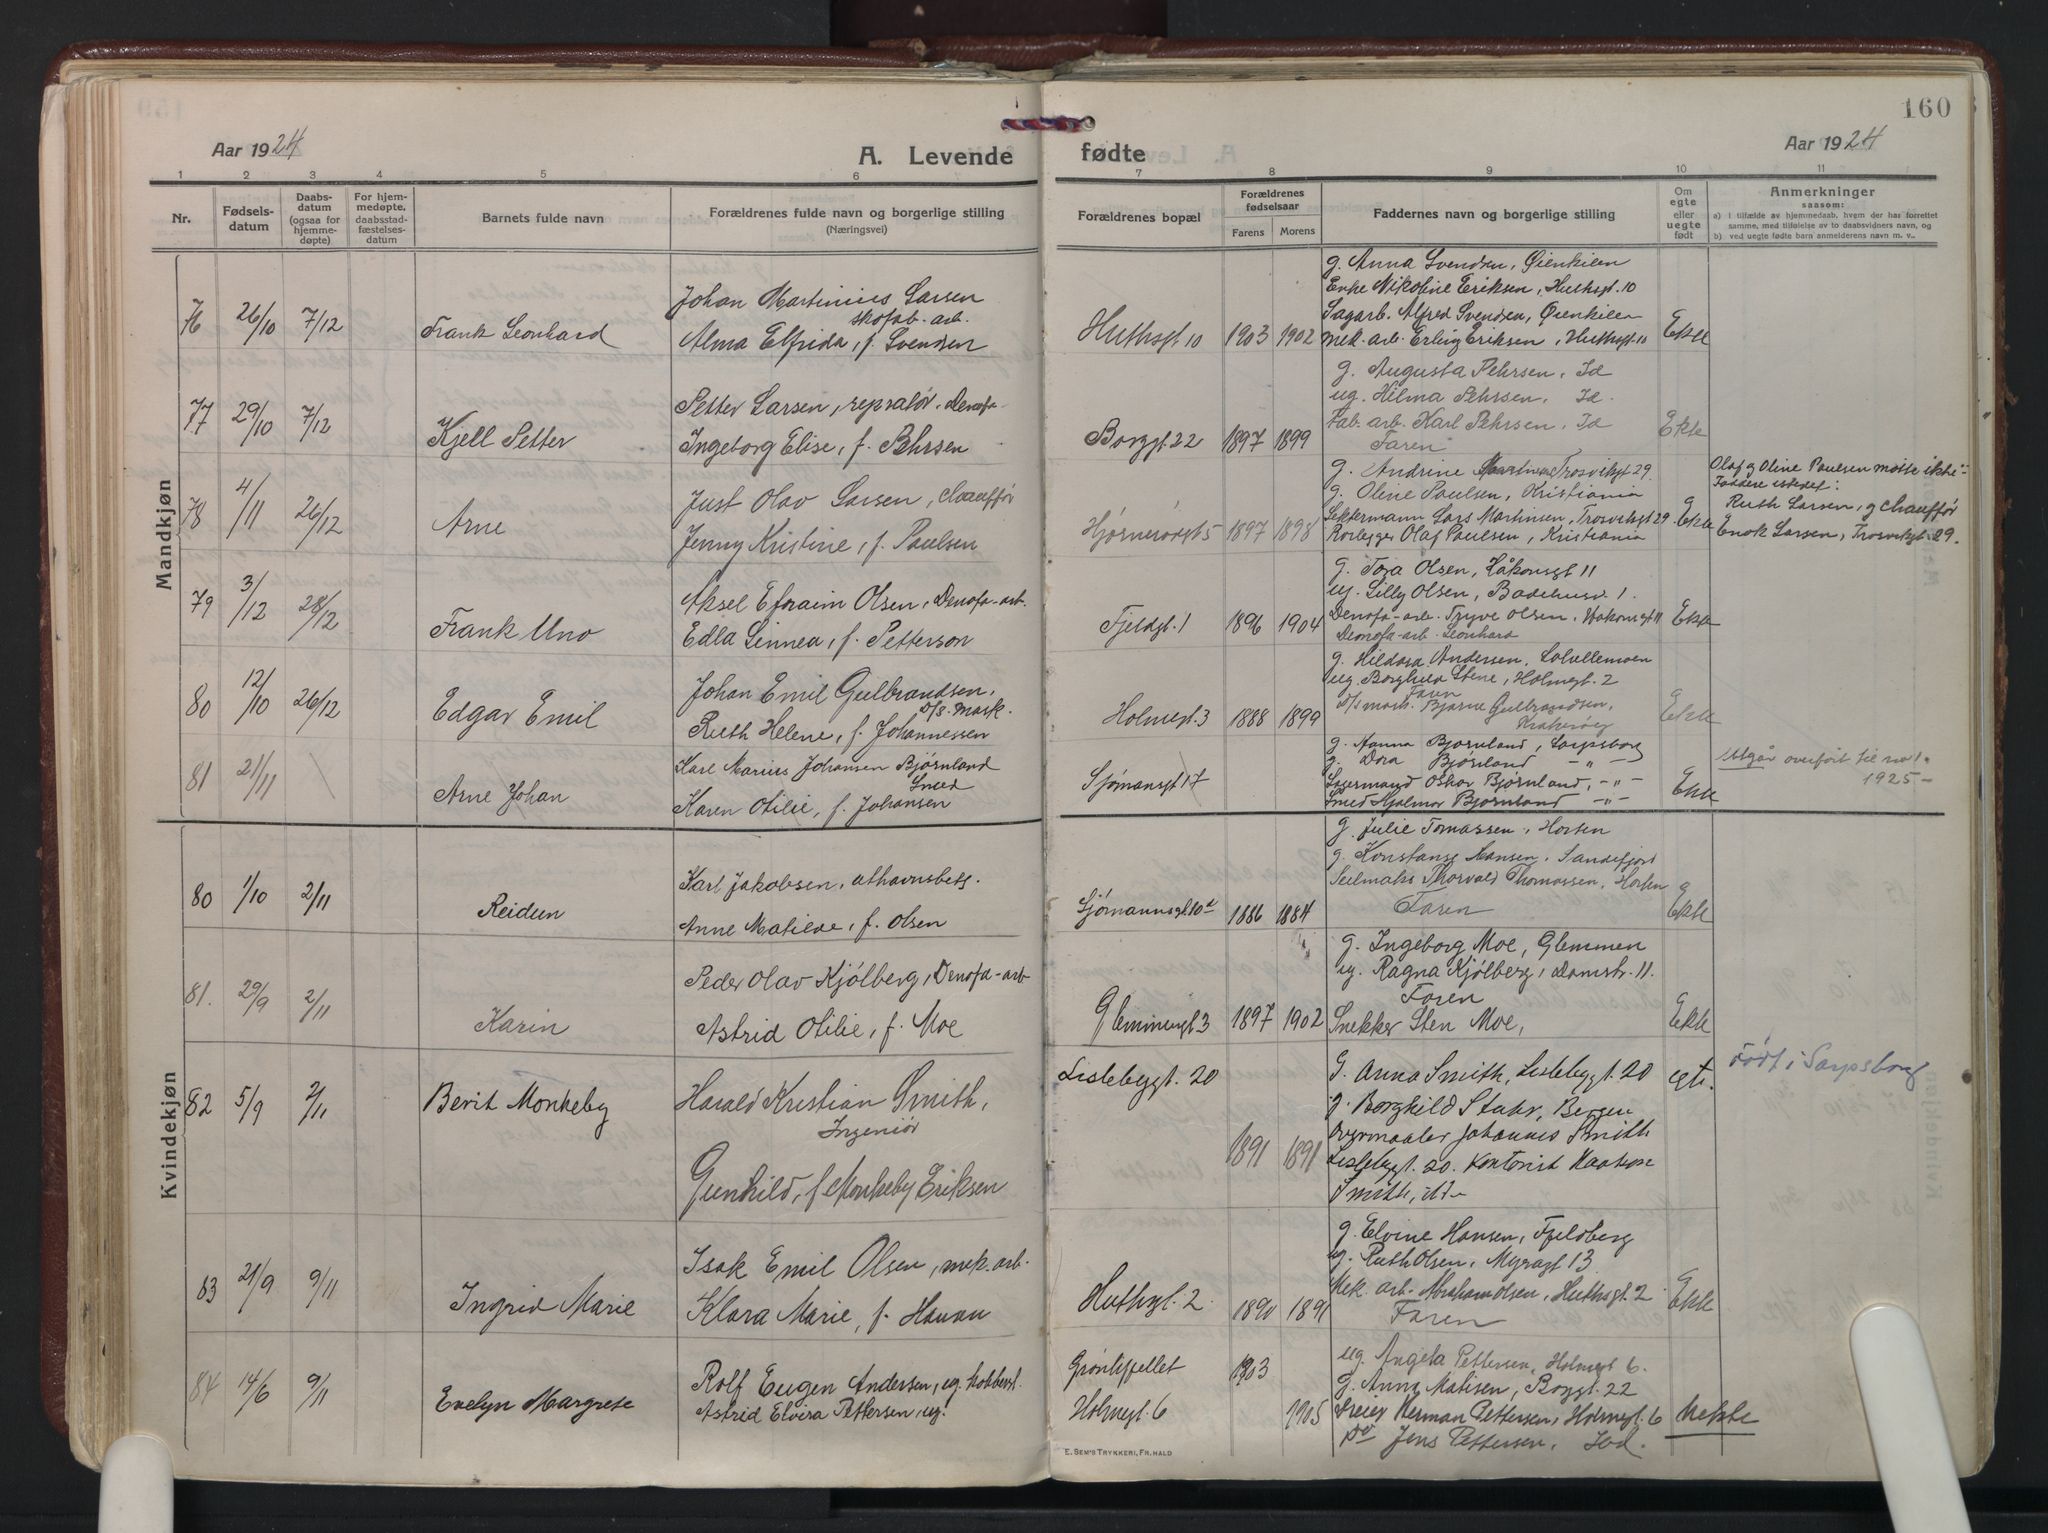 160
Aar 1924
A. Levende
fødte
Aar 1924
1 2 3 4 5 6 7 8 9 10 11
Nr.
Fødsels-
datum
Daabs-
datum
(ogsaa for
hjemme-
døpte)
For hjem-
medøpte,
daabsstad-
fæstelses-
datum
Barnets fulde navn
Forældrenes fulde navn og borgerlige stilling
(Næringsvei)
Forældrenes bopæl
Forældrenes
fødselsaar
Farens Morens
Faddernes navn og borgerlige stilling
Om
egte
eller
uegte
født
Anmerkninger
saasom:
a) i tilfælde av hjemmedaab, hvem der har forrettet
samme, med tilføielse av to daabsvidners navn, og
b) ved uegte fødte barn anmelderens navn m. v..
Mandkjøn
76 26/10 7/12 Frank Leonhard
Johan Martinius Larsen
skofab. arb.
Alma Elfrida, f. Svendsen
Huthsgt 10 1903 1902
g. Anna Svendsen, Øienkilen
Enke Nikoline Eriksen, Huthsgt. 10
Sagarb. Alfred Svendsen, Øienkilen
Mek. arb. Erling Eriksen, Huthsgt. 10
Ekte
77 29/10 7/12 Kjell Petter
Petter Larsen, repratør, Denofa-
Ingeborg Elise, f. Pehrsen
Borggt. 22 1897 1899
g. Augusta Pehrsen, Id
ug. Hilma Pehrsen, Id.
Fab. arb. Karl Pehrsen, Id
Faren
Ekte
78 4/11 26/12 Arne
Just Olav Larsen, chauffør
Jenny Kristine, f. Paulsen
1897 1898
g. Andrine Trosvikgt 29.
g. Oline Paulsen, Kristiania
Lars Martinsen, Trosvikgt 29
Rørlegger Olaf Paulsen, Kristiania
Ekte
Olaf g Oline Paulsen møtte ikke
Faddere istedet:
Ruth Larsen, g chauffør
Enok Larsen, Trosvikgt. 29.
79 3/12 28/12 Frank Uno
Aksel Efraim Olsen, Denofa-arb.
Edla Linnea, f. Petterson
Fjeldgt. 1 1896 1904
g. Tora Olsen, Håkonsgt 11
ug. Lilly Olsen, Badehusv. 1.
Denofa-arb. Tryve Olsen, Haakonsgt 11
Denofa-arb. Leonhard
Ekte
80 12/10 26/12 Edgar Emil
Johan Emil Gulbrandsen,
D/S. mask.
Ruth Helene, f. Johannessen
Holmegt. 3 1888 1899
g. Hildora Andersen,
ug. Borghild Stene, Holmegt. 2
Faren
d/s mask. Bjarne Gulbrandsen,
Krakerøy
Ekte
81 21/11 Arne Johan
Karl Marius Johansen Bjørnland
Smed
Karen Otilie, f. Johansen
Sjømansgt 17
g. Hanna Bjørnland, Sarpsborg
g. Dora Bjørnland -"-
Lagermand Oskar Bjørnland, -"-
Smed Hjalmar Bjørnland -"-
Ekte
Utgår overført til no 1.
1925-
Kvindekjøn
80 1/10 2/11 Reidun
Karl Jakobsen, uthavnsbetj.
Anne Matilde, f. Olsen
Sjømannsgt. 10d 1886 1884
g. Julie Tomassen, Horten
g. Konstanse Hansen, Sandefjord
Seilmaks Thorvald Thomassen, Horten
Faren
Ekte
81. 29/9 2/11 Karin
Peder Olav Kjølberg, Denofa-arb
Astrid Otilie, f. Moe
Glemmengt. 3 1897 1902
g. Ingeborg Moe, Glemmen
ug. Ragna Kjølberg, Damstr. 11.
Faren
Snekker Sten Moe,
Ekte
82 5/9 2/11 Berit Monkeby
Harald Kristian Smith,
Ingeniør
Gunhild, f Monkeby Eriksen
Lislebygt. 20
1891 1891
G. Anna Smith, Lislebygt. 20
g. Borghild Stahr, Bergen
Overmaaler Johannes Smith
Lislebygt. 20. Kontorist Haakon
Smith, itd-
egte.
Født i Sarpsborg
83 21/9 9/11 Ingrid Marie
Isak Emil Olsen, mek. arb.
Klara Marie, f. Hauan
Huthsgt. 2 1890 1891
g. Elvine Hansen, Fjeldberg
ug. Ruth Olsen, Myragt 13
Mek. arb. Abraham Olsen, Huthsgt. 2
Faren
Ekte
84 14/6 9/11 Evelyn Margrete
Rolf Eugen Andersen, ug.
Astrid Elvira Pettersen, ug.
Grøntfjellet 1903
Holmegt. 6 1905
ug. Angela Pettersen, Holmegt 6.
G. Anna Matisen, Borggt. 22
Dreier Herman Pettersen, Holmegt. 6
do Jens Pettersen, Ibd.
Uekte
E. SEM'S TRYKKERI, FR.HALD